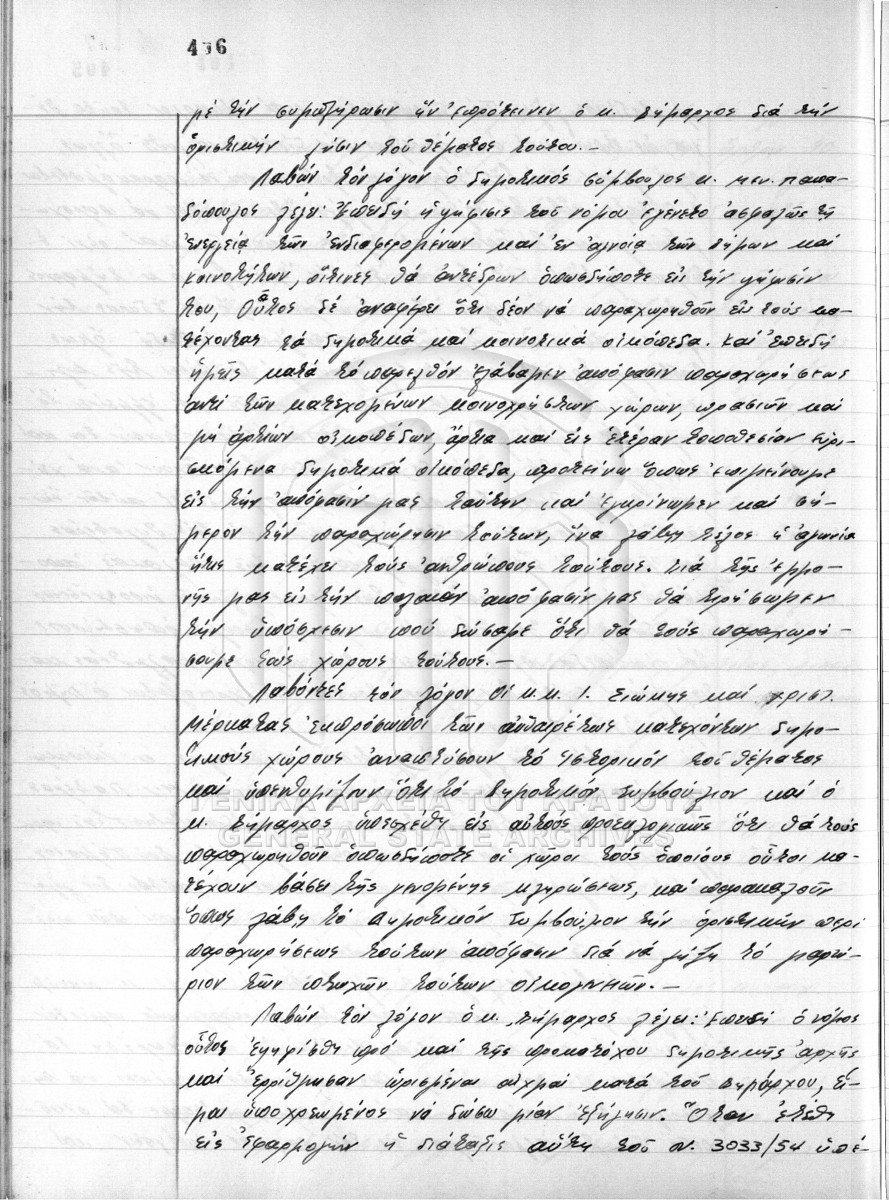 496
μέ τήν συμπλήρωσιν ἥν ἐπρότεινεν ὁ κ. Δήμαρχος διά τήν
ὁριστικήν λύσιν τοῦ θέματος τούτου.-
Λαβών τόν λόγον ὁ δημοτικός σύμβουλος κ. Μεν. Παπα-
δόπουλος λέγει: Ἐπειδή ἡ ψήφισις τοῦ νόμου ἐγένετο ἀσφαλῶς τῇ
ἐνεργείᾳ τῶν ἐνδιαφερομένων καί ἐν ἀγνοίᾳ τῶν Δήμων καί
κοινοτήτων, οἵτινες θά ἀντέδρων ὁπωσδήποτε εἰς τήν ψήφισίν
του, Οὗτος δέ ἀναφέρει ὅτι δέον νά παραχωρηθοῦν εἰς τούς κα-
τέχοντας τά δημοτικά καί κοινοτικά οἰκόπεδα. Καί ἐπειδή
ἡμεῖς κατά τό παρελθόν ἐλάβαμεν ἀπόφασιν παραχωρήσεως
ἀντί τῶν κατεχομένων κοινοχρήστων χώρων, πρασιῶν καί
μή ἀρτίων οἰκοπέδων, ἄρτια καί εἰς ἑτέραν τοποθεσίαν εὑρι-
σκόμενα δημοτικά οἰκόπεδα, προτείνω ὅπως ἐπιμείνουμε
εἰς τήν ἀπόφασίν μας ταύτην καί ἐγκρίνωμεν καί σή-
μερον τήν παραχώρησιν τούτων, ἵνα λάβῃ τέλος ἡ ἀγωνία
ἥτις κατέχει τούς ἀνθρώπους τούτους. Διά τῆς ἐμμο-
νῆς μας εἰς τήν παλαιάν ἀπόφασίν μας θά τηρήσωμεν
τήν ὑπόσχεσιν πού δώσαμε ὅτι θά τούς παραχωρή-
σουμε τούς χώρους τούτους.-
Λαβόντες τόν λόγον οἱ κ.κ. Ι. Σιώκης καί Χρισ.
Μέρκατας ἐκπρόσωποι τῶν αὐθαιρέτως κατεχόντων δημο-
τικούς χώρους ἀναπτύσουν τό ἱστορικόν τοῦ θέματος
καί ὑπενθυμίζουν ὅτι τό Δημοτικόν Συμβούλιον καί ὁ
κ. Δήμαρχος ὑπεσχέθη εἰς αὐτούς προεκλογικῶς ὅτι θά τούς
παραχωρηθοῦν ὁπωσδήποτε οἱ χῶροι τούς ὁποίους οὗτοι κα-
τέχουν βάσει τῆς γενομένης κληρώσεως, καί παρακαλοῦν
ὅπως λάβῃ τό Δημοτικόν Συμβούλιον τήν ὁριστικήν περί
παραχωρήσεως τούτων ἀπόφασιν διά νά λήξῃ τό μαρτύ-
ριον τῶν πτωχῶν τούτων οἰκογενειῶν.-
Λαβών τόν λόγον ὁ κ. Δήμαρχος λέγει: Ἐπειδή ὁ νόμος
οὗτος ἐψηφίσθη πρό καί τῆς προκατόχου δημοτικῆς ἀρχῆς
καί ἐρρίφθησαν ὡρισμέναι αἰχμαί κατά τοῦ Δημάρχου, εἶ-
μαι ὑποχρεωμένος νά δώσω μίαν ἐξήγησιν. Ὅταν ἐτέθη
εἰς ἐφαρμογήν ἡ διάταξις αὕτη τοῦ ν. 3033/54 ὑπέ-
ΓΕΝΙΚΑ ΑΡΧΕΙΑ ΤΟΥ ΚΡΑΤΟΥΣ
GENERAL STATE ARCHIVES